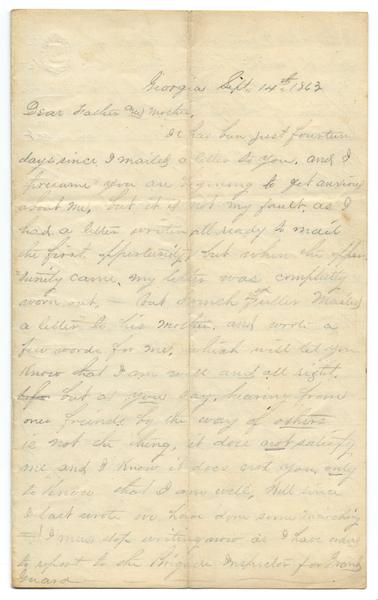 Georgia Sept. 14th. 1863
Dear Father and Mother,
It has been just fourteen
days since I mailed a letter to you. and I
presume you are begining to get anxious
about me, but it is not my fault. as I
had a letter writen all ready to mail
the first oppertunity, but when the opper
tunity came, my letter was completly
worn out, — but Fuller Mailed
a letter to his Mother. and wrote a
few words for me, which will let you
know that I am well and all right.
but as you say, hearing from
ones freinds by the way of others
is not the thing, it does not satisfy
me and I know it does not you, only
to know that I am well, Well since
I last wrote we have done some marching
— I must stop writing now as I have
to report to the Brigade Inspector for Grand
Guard